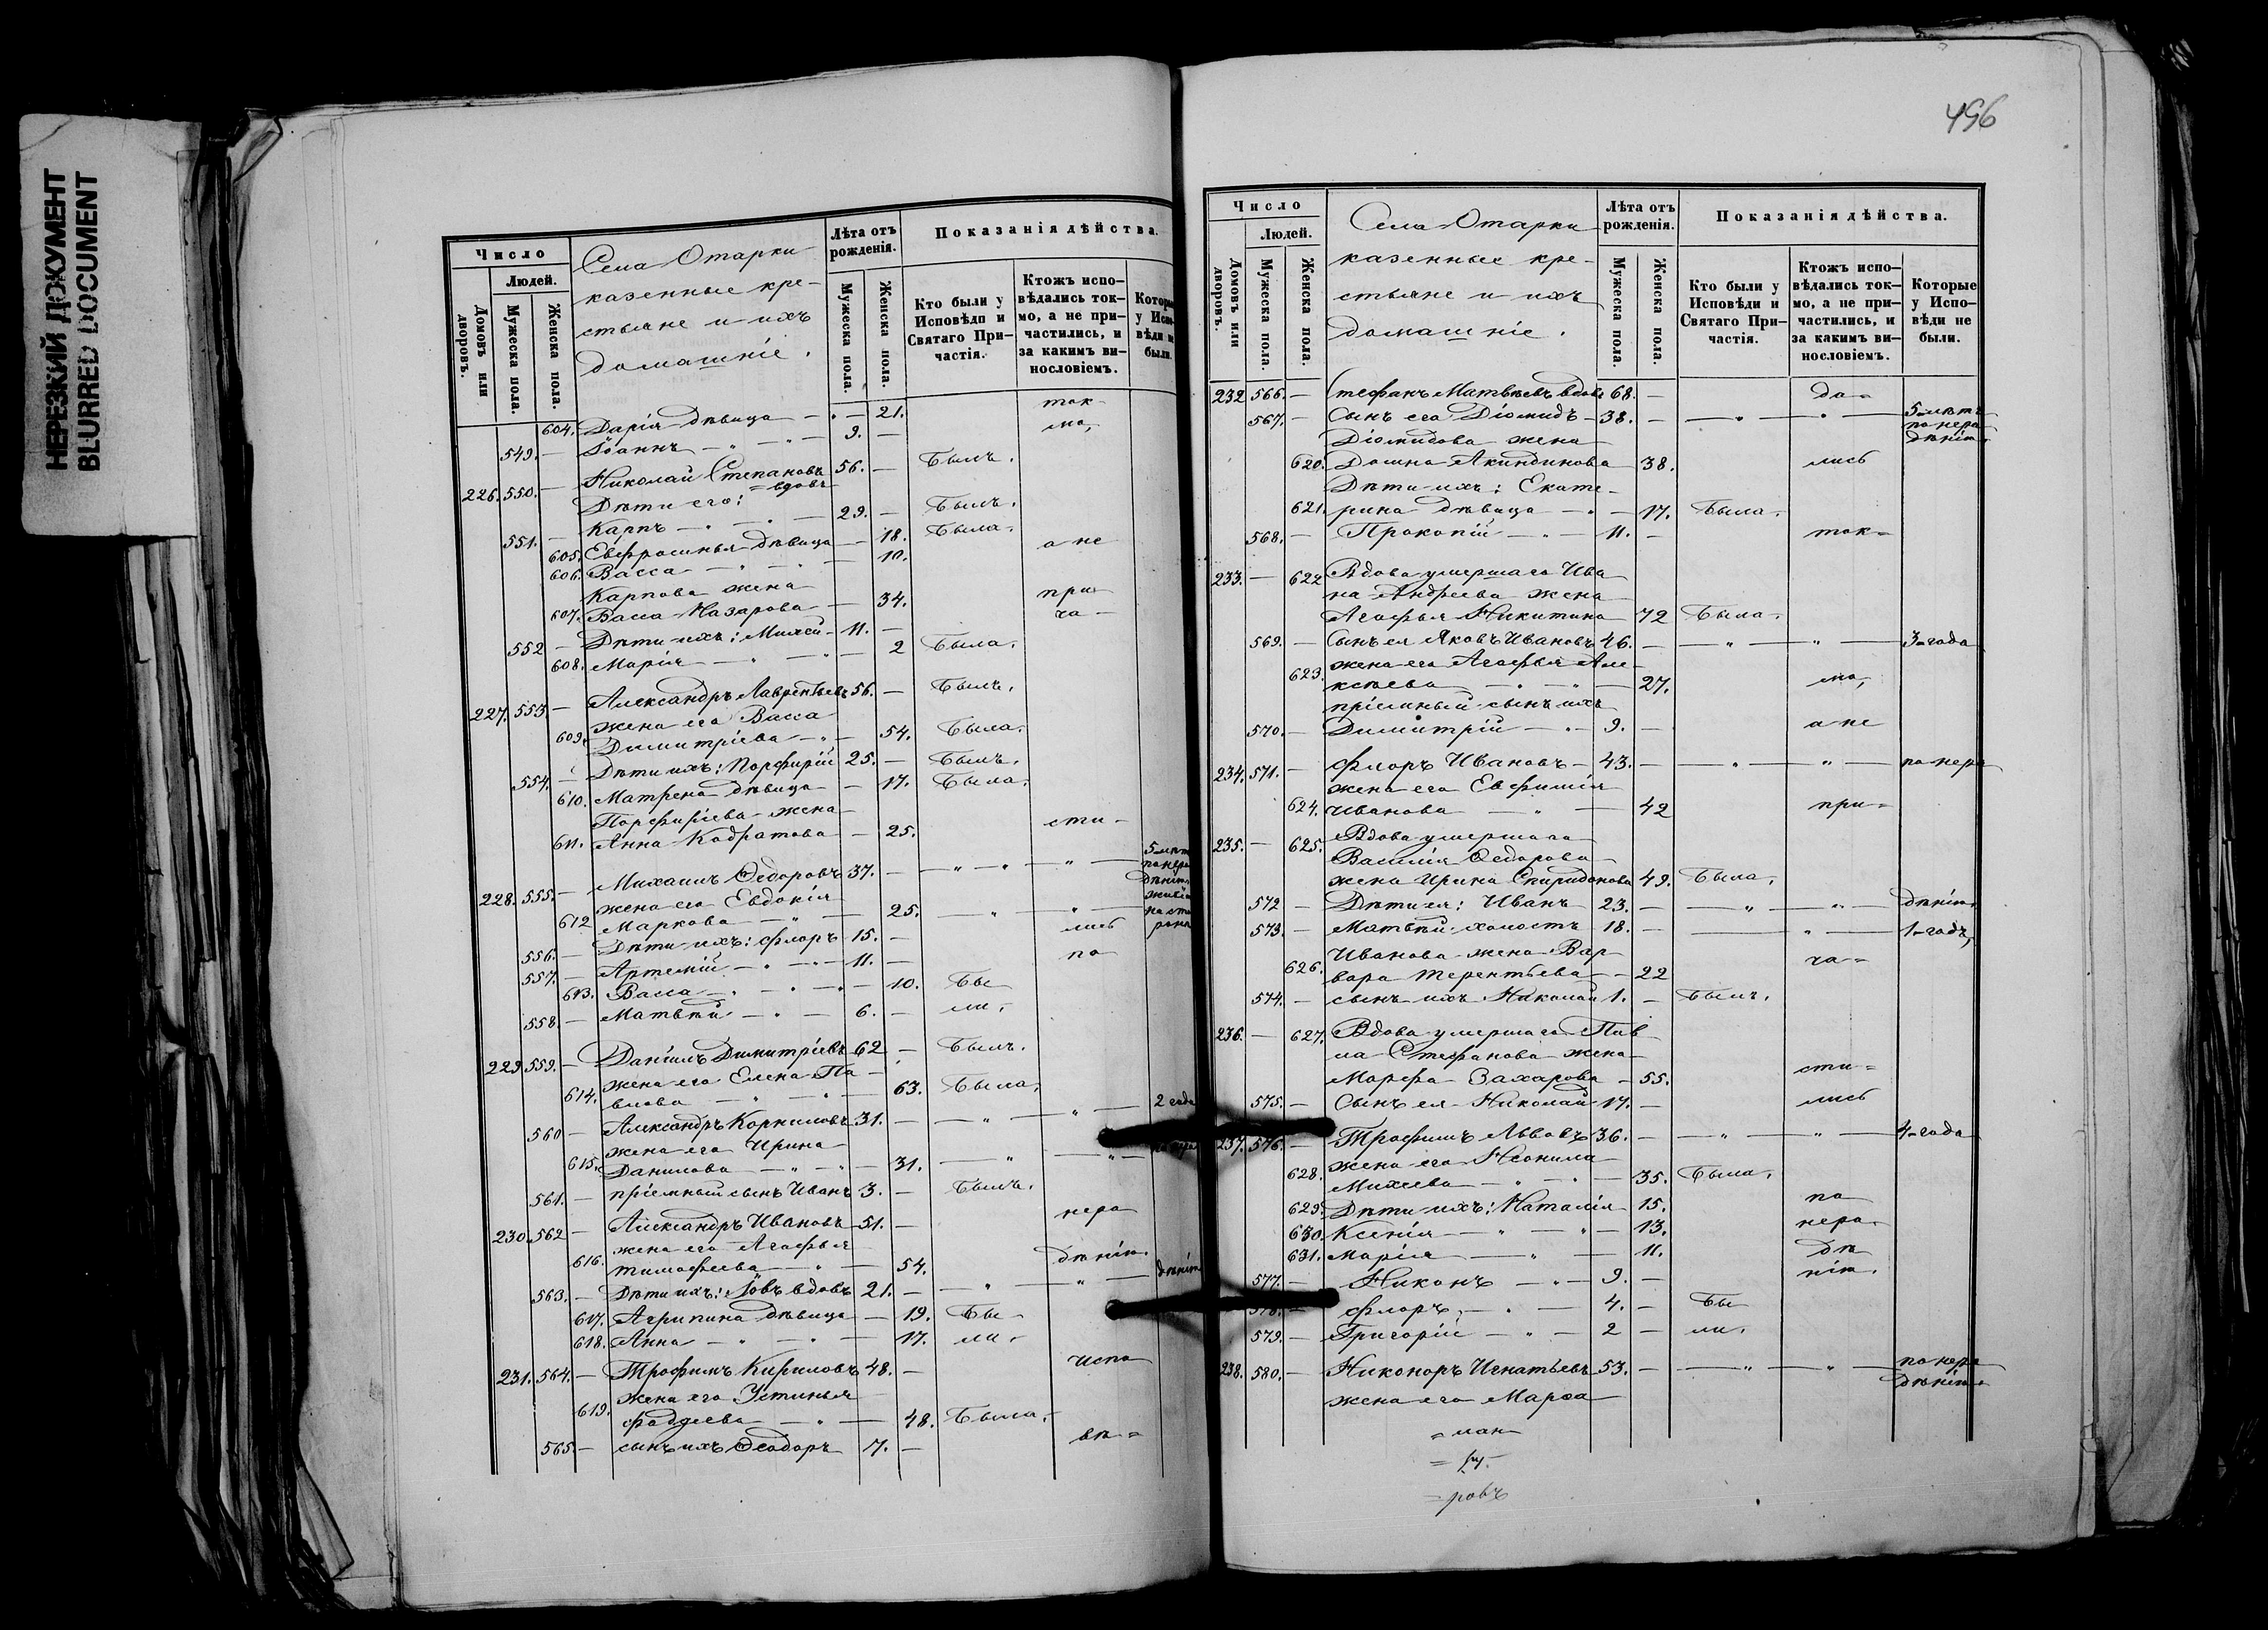 НЕРЕЗКИЙ ДОКУМЕНТ
BLURRED DOCUMENT
Число
Людей.
Домовъ или дворовъ.
Мужеска пола.
Женска пола.
Села Отарки
казенные кре-
стьяне и ихъ
домашніе.
Лѣта отъ рожденія.
Мужеска пола.
Женска пола.
Показанія дѣйства.
Кто были у Исповѣди и Святаго При-частія.
Ктожъ испо-вѣдались ток-мо, а не при-частились, и за какимъ ви-нословіемъ.
604. Дарія дѣвица — 21. ток-
549. — Іоаннъ — 9. — мо,
226. 550. — Николай Степановъ 56. — Былъ.
= вдовъ
Дѣти его:
551. — Карпъ — 29. — Былъ.
605. Евфросинья дѣвица — 18. Была.
606. Васса — 10. а не
Карпова жена
607. Васса Назарова — 34. при-
ча-
552 — Дѣти ихъ: Михей 11. —
608. Марія — 2 Была.
227. 553. — Александръ Лаврентьевъ 56. — Былъ.
жена его Васса
609. Димитріева — 54. Была.
554. — Дѣти ихъ: Порфирій 25. — Былъ.
610. Матрена дѣвица — 17. Была.
Порфиріева жена
611. Анна Кодратова — 25. сти-
228. 555. — Михаилъ Ѳедоровъ 37. — 5 лѣт по нера дѣнію
жена его Евдокія
612 Маркова — 25. на сто роне
556. — Дѣти ихъ: Флоръ 15. — лись
557. — Артемій — 11. — по
613. Васса — 10. Бы
558. — Матвѣй — 6. — ли,
229. 559. — Даніилъ Димитріевъ 62 — Былъ.
жена его Елена Па-
614. влова — 63. Была.
560 — Александръ Корниловъ 31. — 2 года
жена его Ирина
615. Данилова — 31.
561. — пріемный сынъ Иванъ 3. — Былъ.
230. 562 — Александръ Ивановъ 51. — нера
жена его Агафья
616. Тимофеева — 54. дѣнію.
563. — Дѣти ихъ: Іовъ вдовъ 21. — дѣнію
617. Агрипина дѣвица — 19. Бы-
618. Анна — 17. ли.
231. 564. — Трофимъ Кириловъ 48. — испо
жена его Устинья
619. Фаддеева — 48. Была.
565. — сынъ ихъ Ѳеодоръ 7. — вѣ=
496
Число
Людей.
Домовъ или дворовъ.
Мужеска пола.
Женска пола.
Села Отарки
казенные кре-
стьяне и ихъ
домашніе.
Лѣта отъ рожденія.
Мужеска пола.
Женска пола.
Показанія дѣйства.
Кто были у Исповѣди и Святаго При-частія.
Ктожъ испо-вѣдались ток-мо, а не при-частились, и за какимъ ви-нословіемъ.
Которые у Испо-вѣди не были.
232 566. — Стефанъ Матвѣевъ вдовъ 68. — да-
567. — Сынъ его Діомидъ — 38. — 5 лѣтъ по нера дѣнію.
Діомидова жена
620. Домна Акиндинова 38. лись
Дѣти ихъ: Екате-
621. рина дѣвица — 17. Была.
568. — Прокопій — 11. — ток=
233. — 622 Вдова умершаго Ива
на Андреева жена
Агафья Никитина 72 Была.
569. — Сынъ ея Яковъ Ивановъ 46. — 3 года
жена его Агафья Але-
623. ксѣева — 27. мо,
пріемный сынъ ихъ
570. — Димитрій — 9. — а не
234. 571. — Флоръ Ивановъ — 43. — по нера
жена его Евфимія
624. Иванова — 42 при=
235. — 625. Вдова умершаго
Василія Ѳедорова
жена Ирина Спиридонова 49. Была.
572 — Дѣти ея: Иванъ 23. — дѣнію
573. — Матвѣй холостъ 18. — 1 годъ,
Иванова жена Вар-
626. вара Терентьева — 22 ча=
574. — сынъ ихъ Николай 1. — Былъ.
236. — 627. Вдова умершаго Пав
ла Стефанова жена
Марфа Захарова — 55. сти=
575. — Сынъ ея Николай 17. — лись
237. 576. — Трофимъ Львовъ 36. — 4 года
жена его Неонила
628. Михеева — 35. Была.
629. Дѣти ихъ: Наталія 15. по
630. Ксенія — 13. нера
631. Марія — 11. дѣ
577. — Никонъ — 9. — нію.
578. — Флоръ — 4. — Бы
579. — Григорій — 2 — ли.
238. 580. — Никоноръ Игнатьевъ 53. — по нера дѣнію
жена его Марѳа
=ровъ